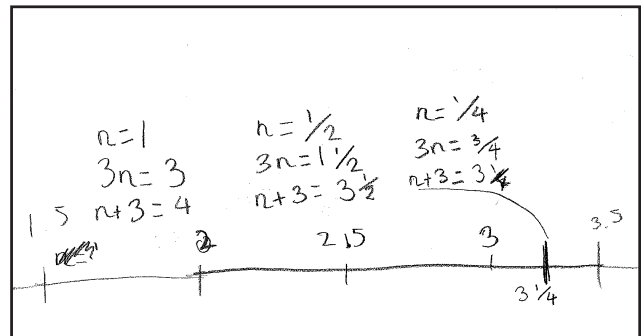 n=1
3n=3
n+3=4
n=1/2
3n=1 1/2
n+3=3 1/2
n=1/4
3n=3/4
n+3=3 1/4
1.5
2
2.5
3
3 1/4
3.5